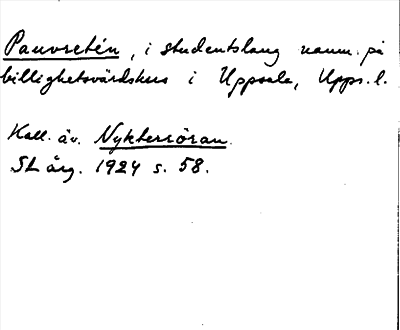 Pauvretén, i studentslang namn på
billighetsvärdshus i Uppsala, Upps. l.
Kall. äv. Nyktersöran.
SL årg. 1924 s. 58.